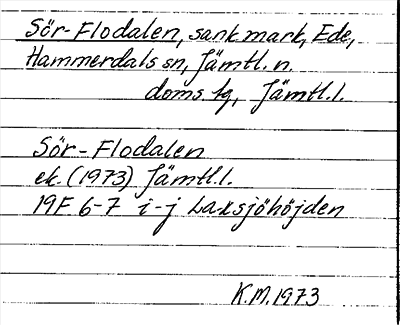 Sör-Flodalen, sank mark, Ede,
Hammerdals sn, Jämtl. n.
doms. hg, Jämtl. l.
Sör-Flodalen
ek. (1973) Jämtl. l.
19F 6-7 i-j Laxsjöhöjden
K.M. 1973